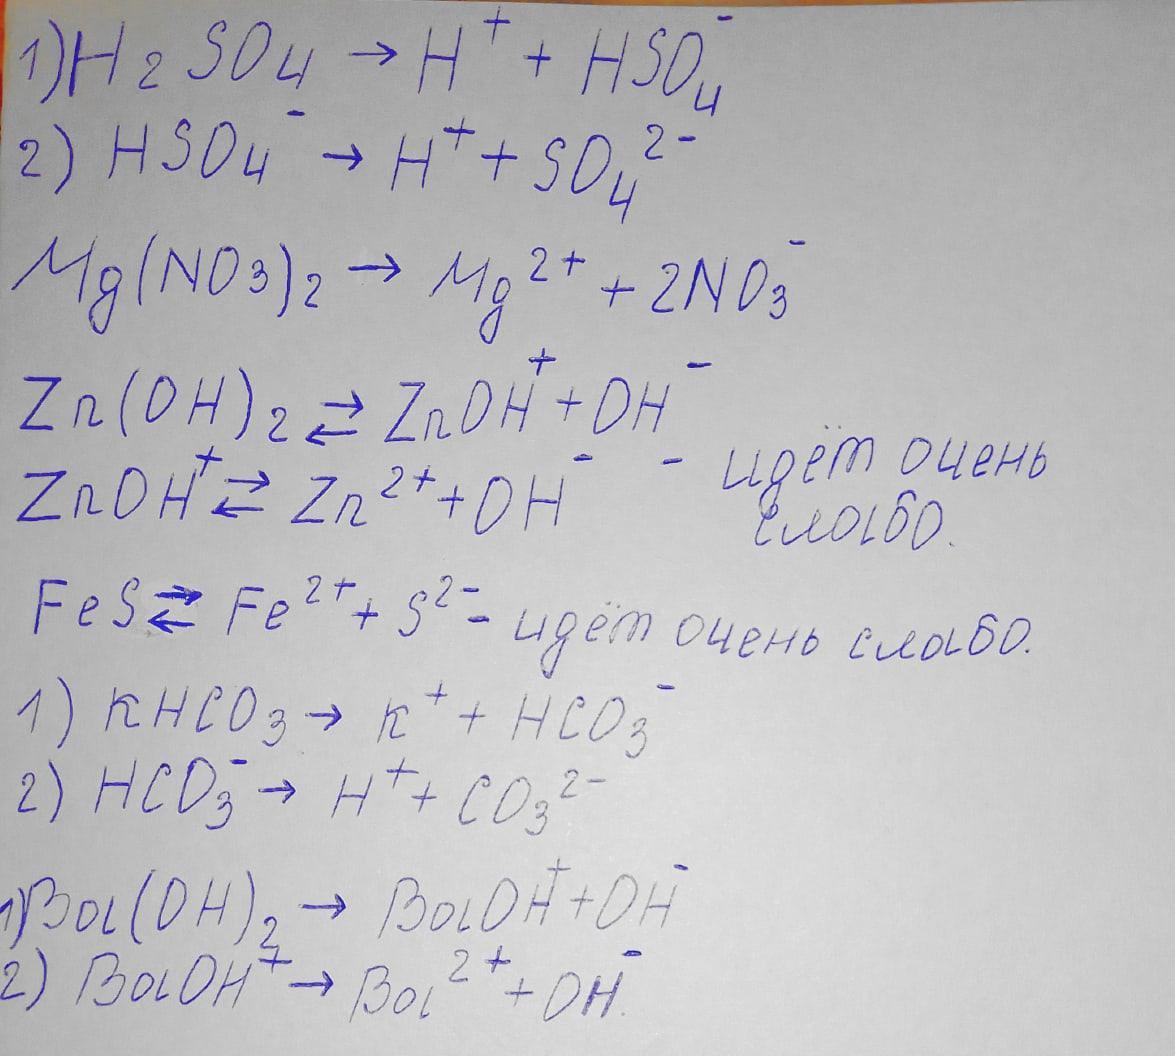 1) H₂SO₄ → H⁺ + HSO₄⁻
2) HSO₄⁻ → H⁺ + SO₄²⁻
Mg(NO₃)₂ → Mg²⁺ + 2NO₃⁻
Zn(OH)₂ ⇄ ZnOH⁺ + OH⁻
ZnOH⁺ ⇄ Zn²⁺ + OH⁻ - идёт очень
слабо.
FeS ⇄ Fe²⁺ + S²⁻ - идёт очень слабо.
1) KHCO₃ → K⁺ + HCO₃⁻
2) HCO₃⁻ → H⁺ + CO₃²⁻
1) Ba(OH)₂ → BaOH⁺ + OH⁻
2) BaOH⁺ → Ba²⁺ + OH⁻.